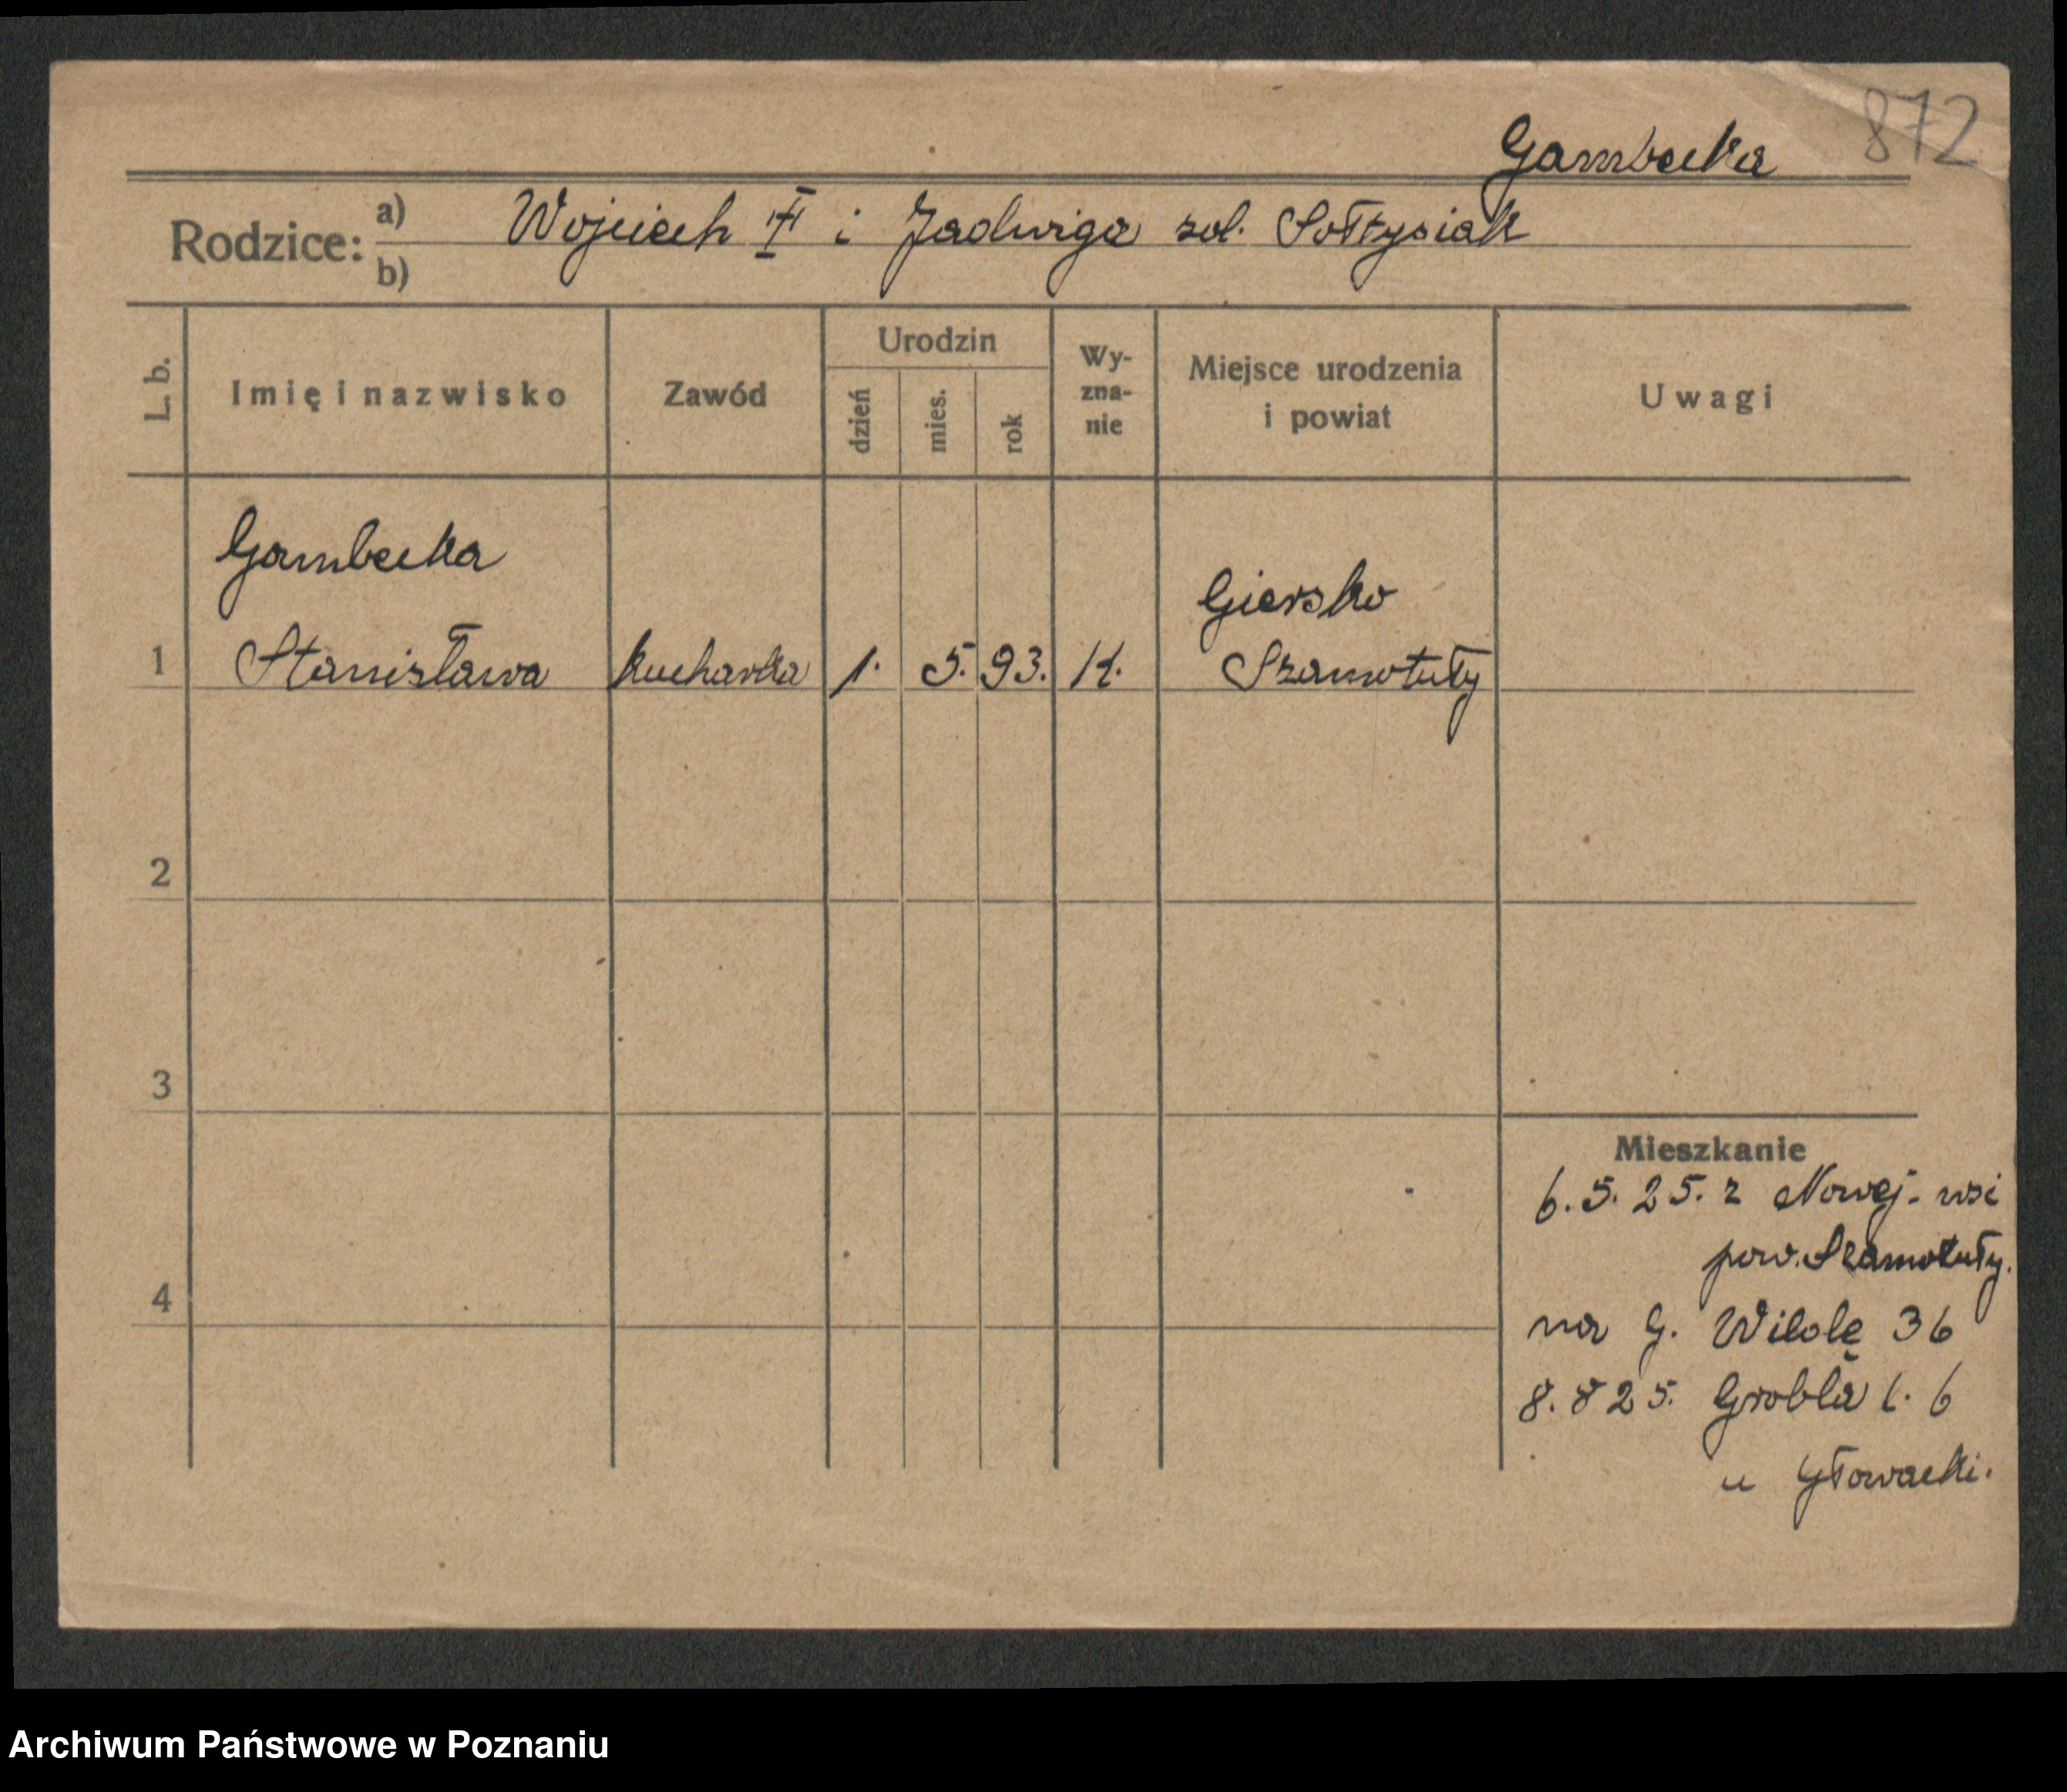 872
Gambecka
Rodzice: a) Wojciech † i Jadwiga zol. Sołtysiak
b)
L. b. Imię i nazwisko Zawód Urodzin dzień mies. rok Wy-zna-nie Miejsce urodzenia i powiat Uwagi
Gambecka Giersko
1 Stanisława kucharka 1. 5. 93. K. Szamotuły
2
3
Mieszkanie
6.5.25. z Nowej-wsi
pow. Szamotuły.
4
na G. Wildę 36
8.8 25. Grobla l. 6
u Głowacki.
Archiwum Państwowe w Poznaniu